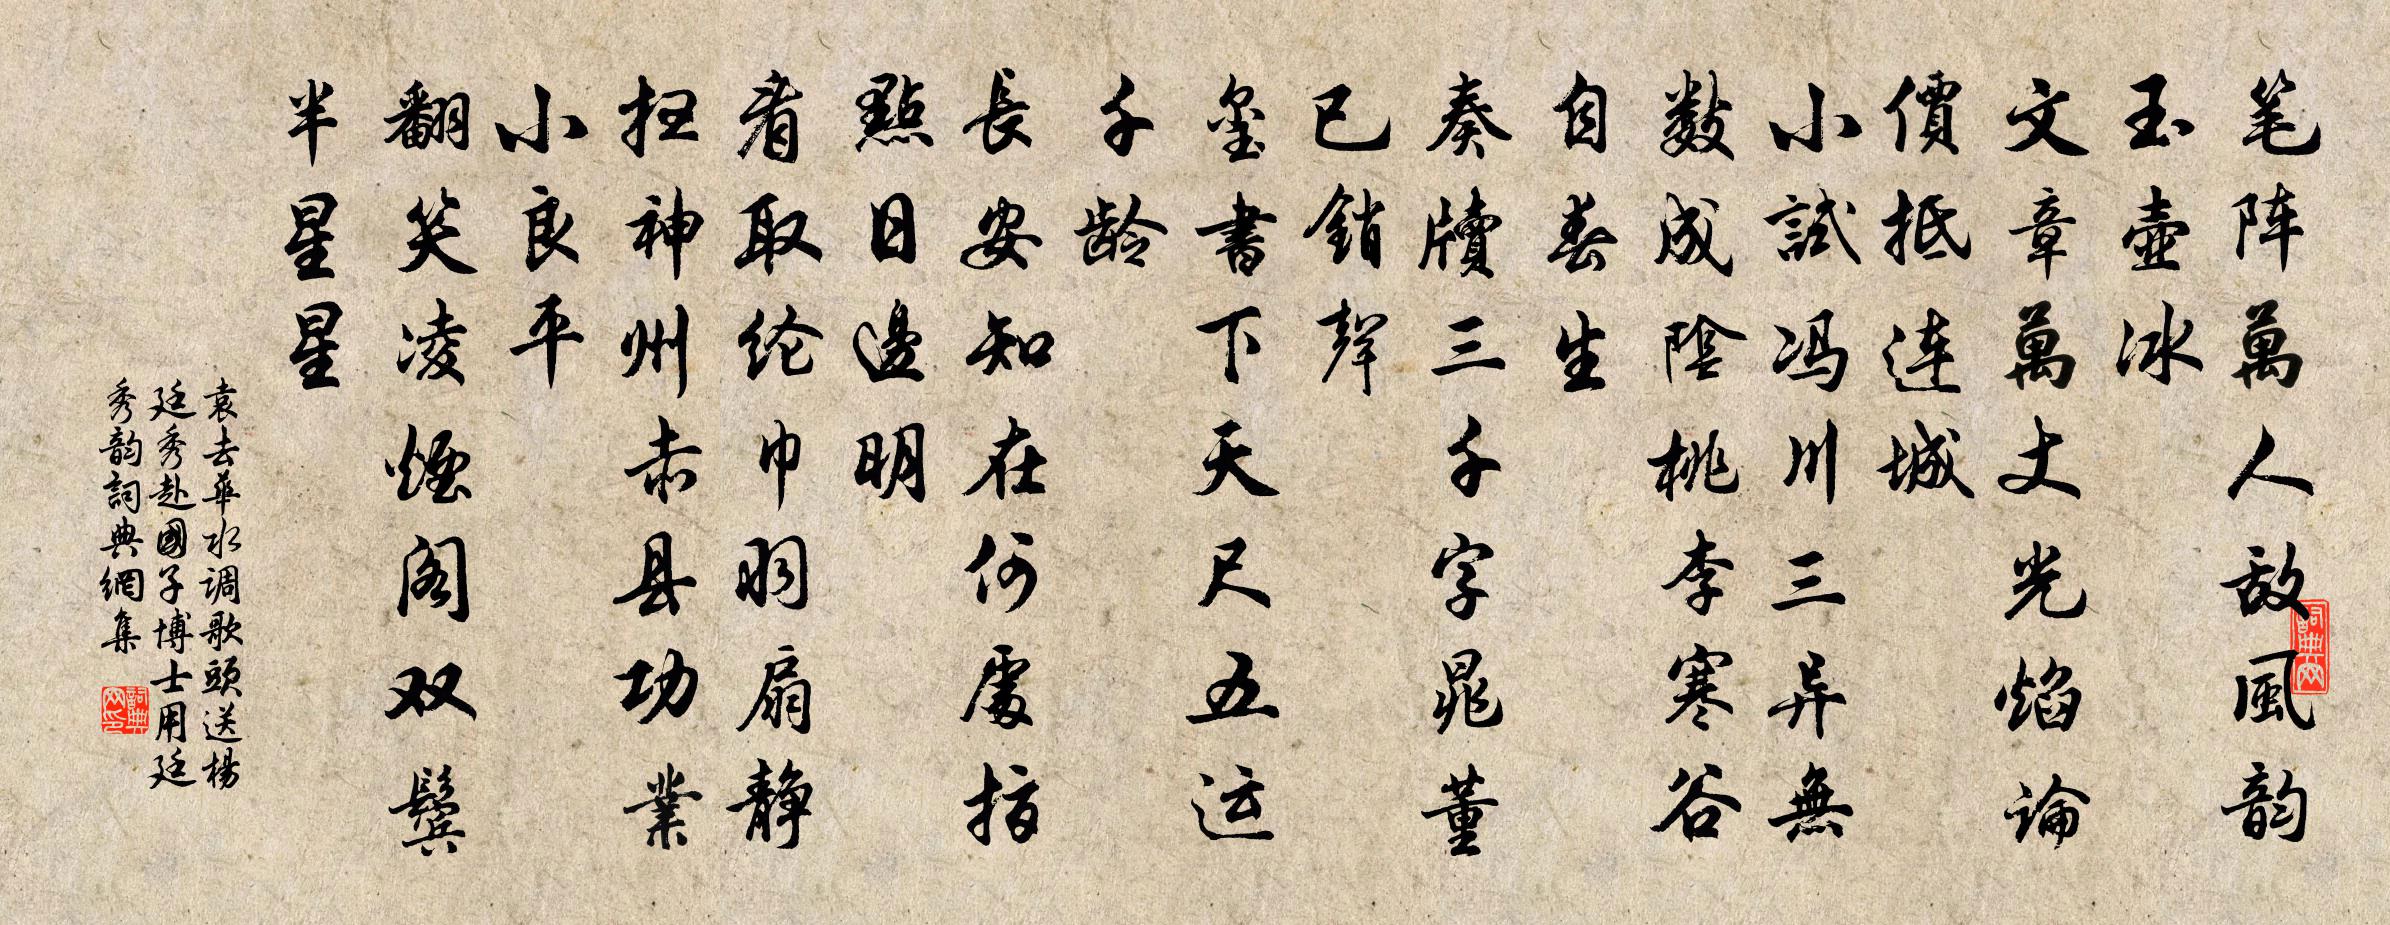 笔阵萬人敌風韵
玉壶冰
文章萬丈光焰論
價抵连城
小試冯川三异無
数成陰桃李寒谷
自春生
奏牍三千字晁董
已銷聲
玺書下天尺五运
千龄
長安知在何處指
點日邊明
看取纶巾羽扇静
扫神州赤县功業
小良平
翻笑凌烟阁双鬓
半星星
袁去華水调歌頭送楊
廷秀赴國子博士用廷
秀韵詞典網集
詞典网
詞典网印